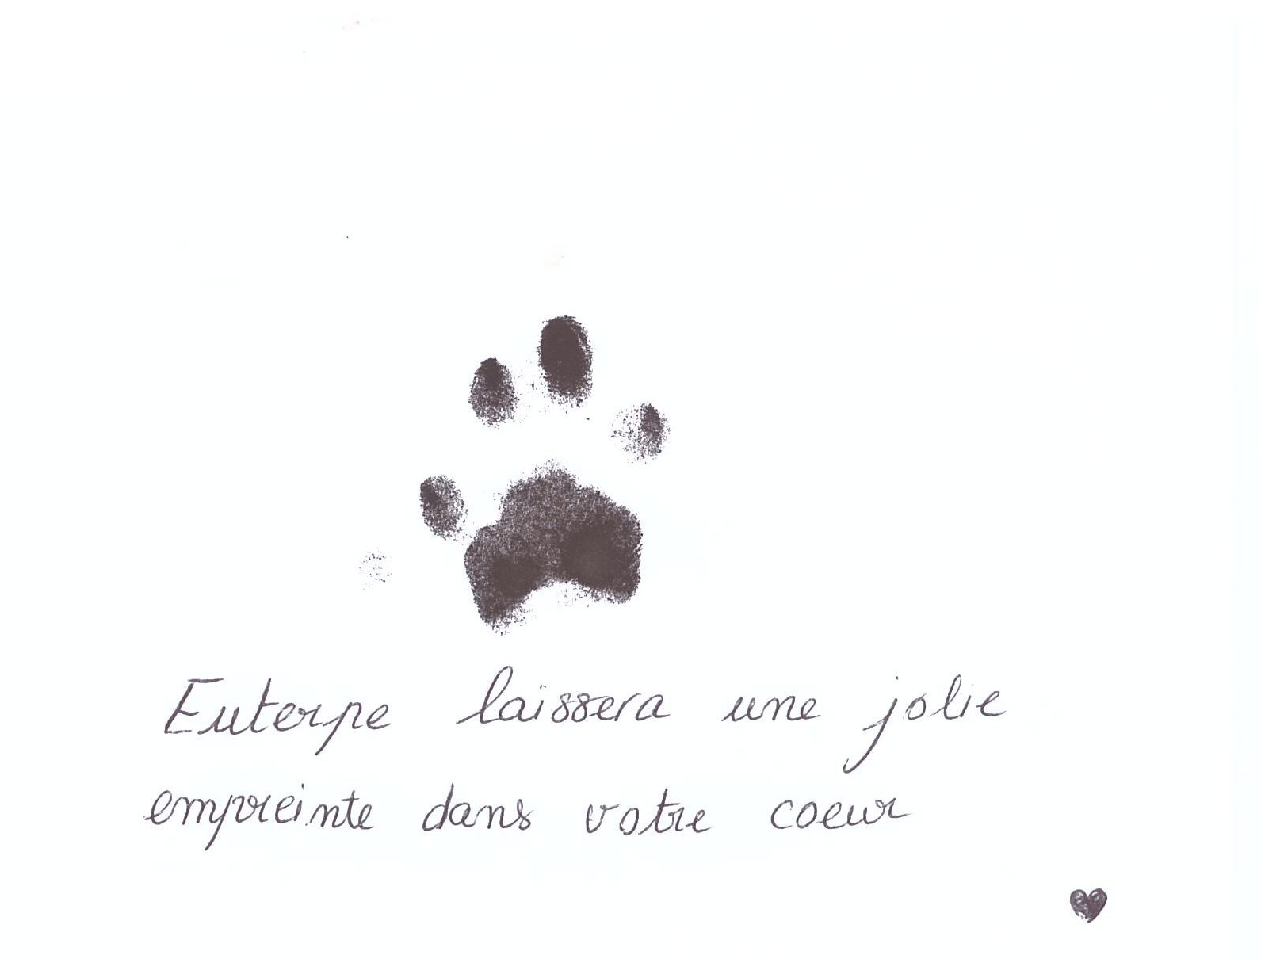 Euterpe laissera une jolie
empreinte dans votre coeur